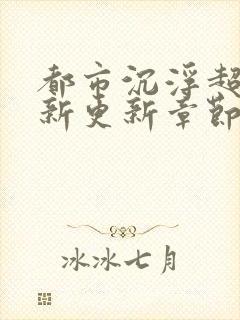 都市沉浮超
新更新章節
冰冰七月